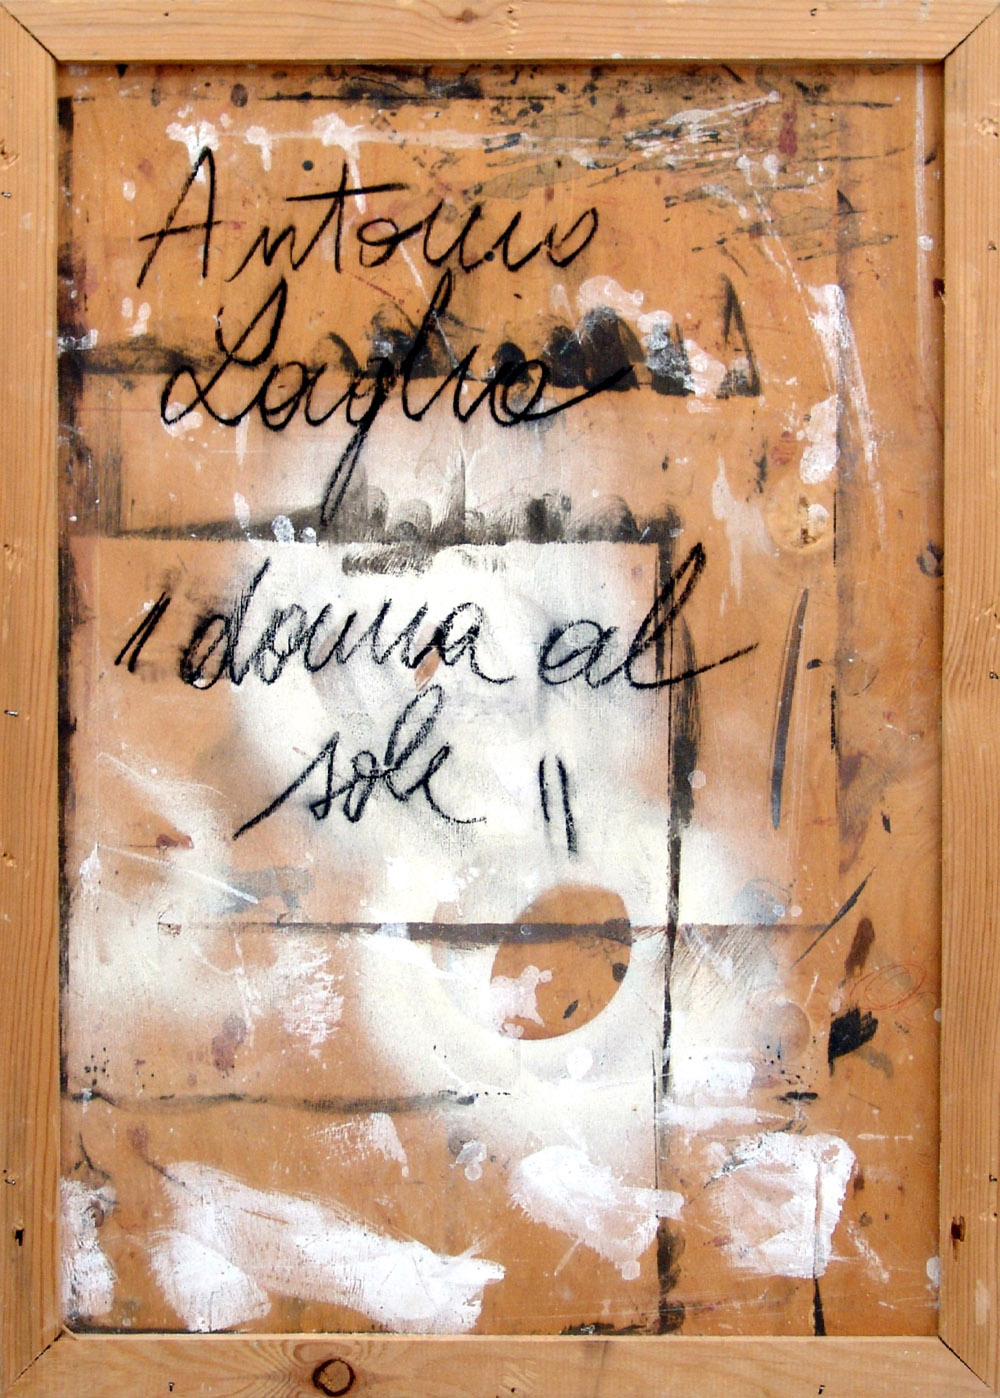 Antonio
Laglio
"donna al
sole"